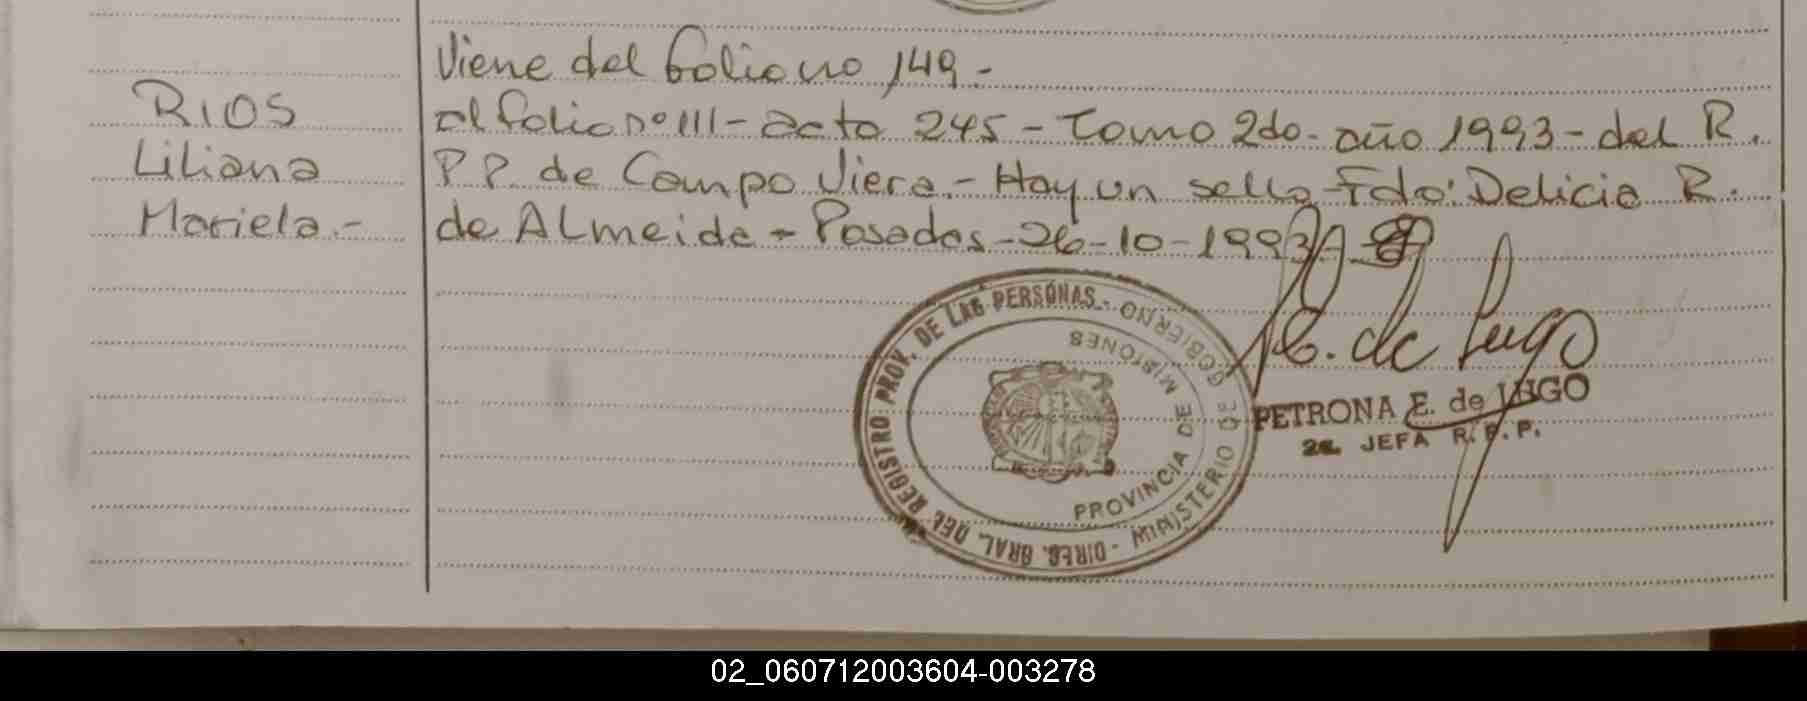 Viene del folio no 149.-
RIOS
Liliana
Mariela.-
al folio nº 111- acta 245 - Tomo 2do- año 1993 - del R.
P P. de Campo Viera.- Hay un sello Fdo: Delicia R.
de Almeida - Posadas - 26-10-1993
DIREC. GRAL. DEL REGISTRO PROV. DE LAS PERSONAS -
MINISTERIO DE GOBIERNO
PROVINCIA DE MISIONES
E. de Lugo
PETRONA E. de LUGO
2a. JEFA R. P. P.
02_060712003604-003278